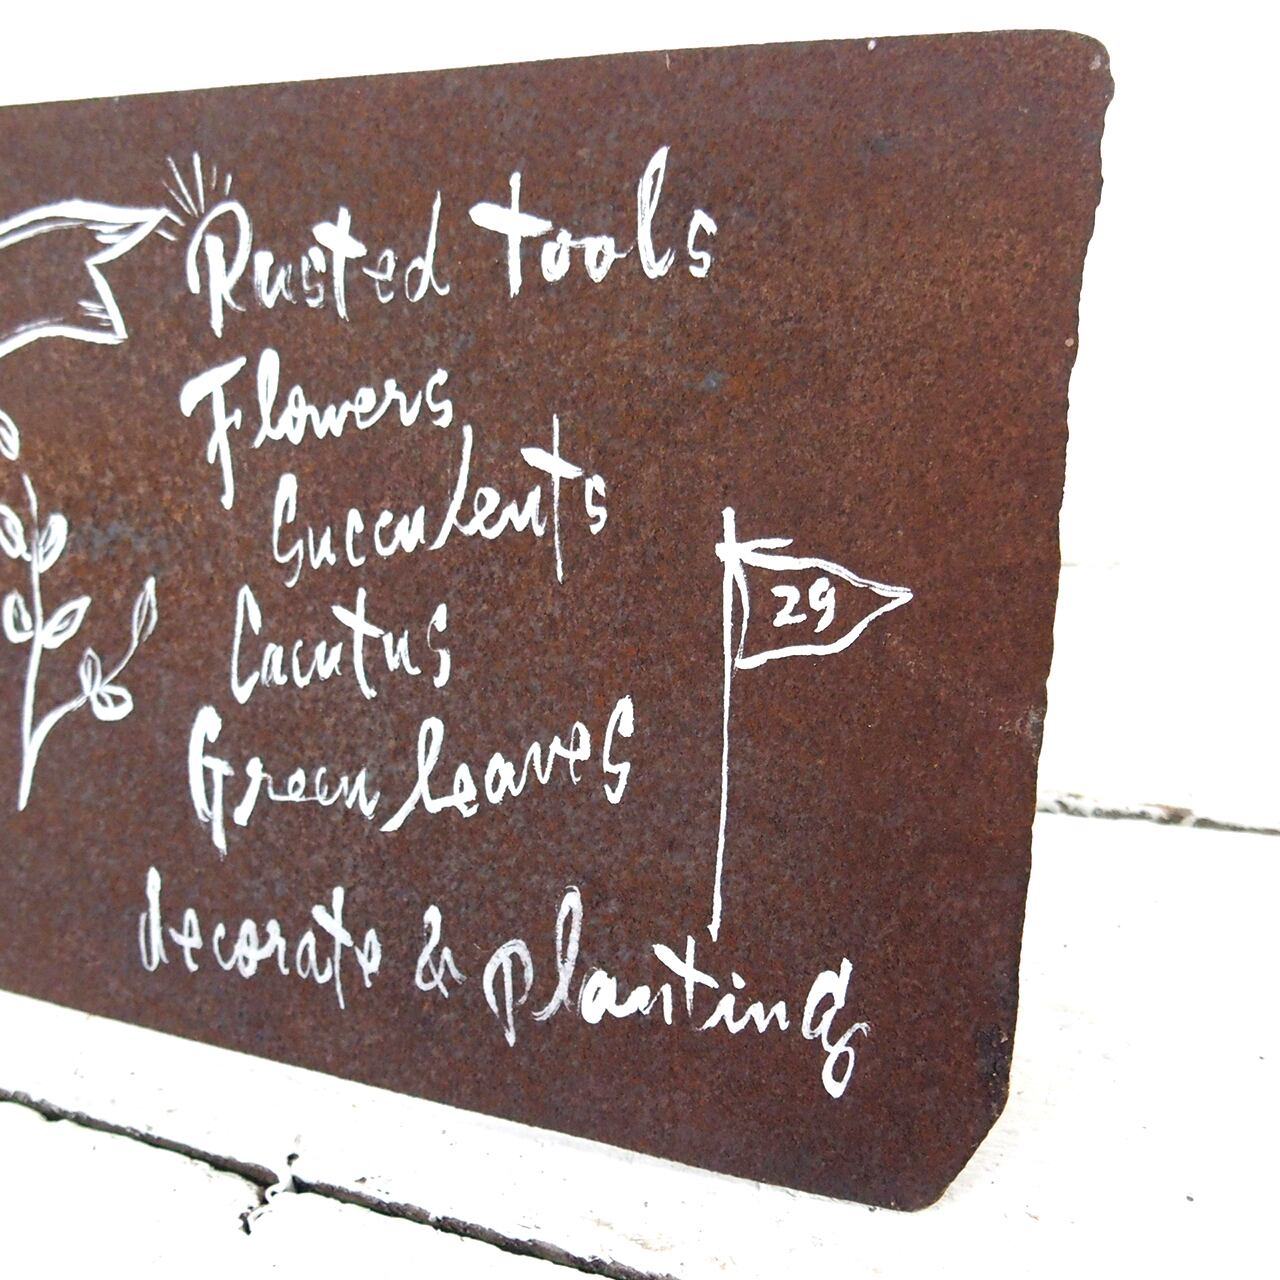 Rusted tools
Flowers
Succulents
Cacutus
Green leaves
29
decorate & planting